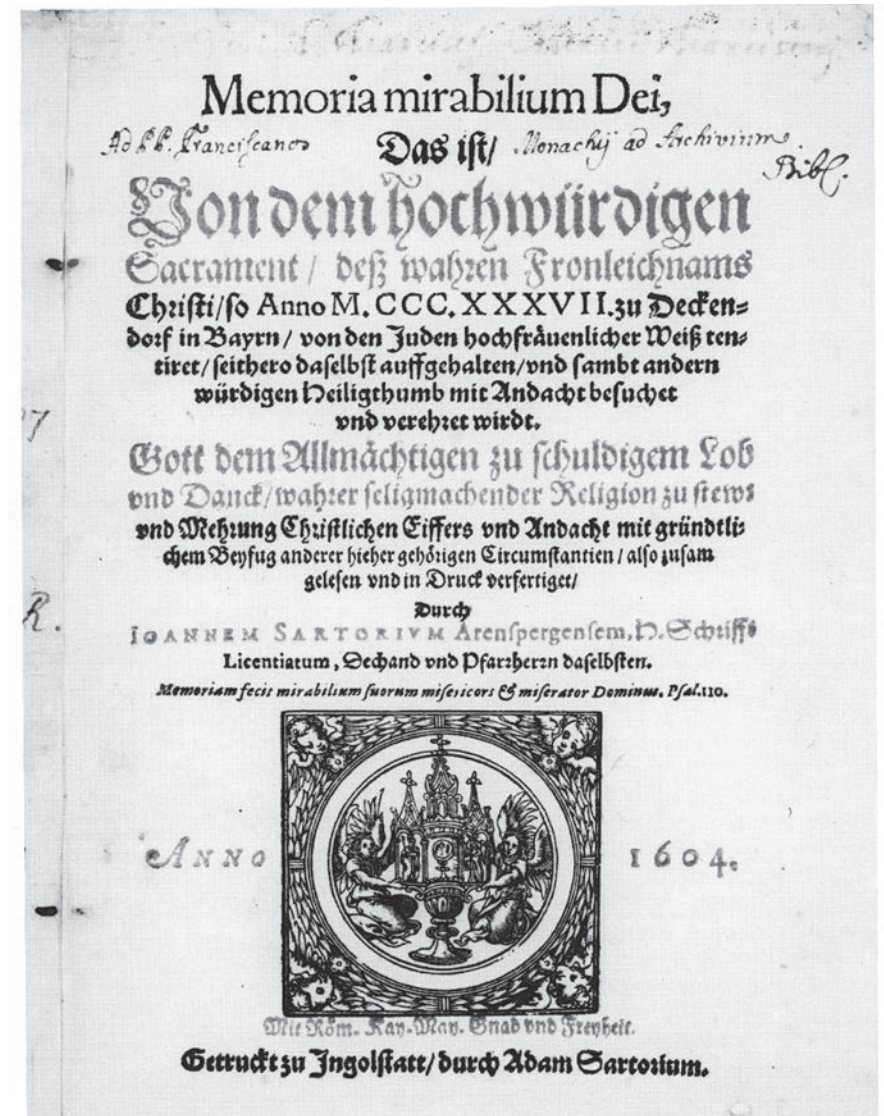 Memoria mirabilium Dei,
Ad P.P. Franciscanos Das ist/ Monachij ad Archivium
Bibl.
Von dem hochwürdigen
Sacrament / deß wahren Fronleichnams
Christi/so Anno M.CCC.XXXVII.zu Decken-
dorf in Bayrn/ von den Juden hochfräuenlicher Weiß ten-
tiret/seithero daselbst auffgehalten/vnd sambt andern
würdigen Heiligthumb mit Andacht besuchet
vnd verehret wirdt.
7
Gott dem Allmächtigen zu schuldigem Lob
vnd Danck/wahrer seligmachender Religion zu stews
vnd Mehrung Christlichen Eiffers vnd Andacht mit gründtli-
chem Beyfug anderer hieher gehörigen Circumstantien/also zusam
gelesen vnd in Druck verfertiget/
Durch
R.
IOANNEM SARTORIVM Arenspergensem, H. Schrifft
Licentiatum, Dechand vnd Pfarrherrn daselbsten.
Memoriam fecit mirabilium suorum misericors & miserator Dominus. Psal.110.
ANNO 1604.
Mit Röm. Kay. May. Gnad vnd Freyheit.
Getruckt zu Ingolstatt/durch Adam Sartorium.